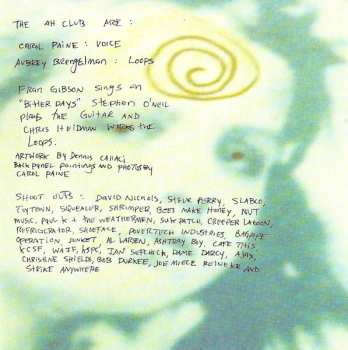 THE AH CLUB ARE:
CAROL PAINE: VOICE
AUBREY BRENGELMAN: LOOPS
FRAN GIBSON SINGS ON
"BITTER DAYS" STEPHEN O'NEIL
PLAYS THE GUITAR AND
CHRIS HEIDMAN WORKS THE
LOOPS.
ARTWORK BY DENNIS CALLACI
BACK PANEL PAINTINGS AND PHOTOS BY
CAROL PAINE
SHOUT OUTS: DAVID NICHOLS, STEVE PERRY, SLABCO,
TINY TOWN, SQUEALER, SHRIMPER, BEES MAKE HONEY, NUT
MUSIC, PAUL K + THE WEATHERMEN, SUKPATCH, CREEPER LAGOON,
REFRIGERATOR, SHOEFACE, POVERTECH INDUSTRIES,
OPERATION JUNKET, AL LARSEN, ASHTRAY BOY, CAFE THIS
KCSF, WAIF, KSPC, IAN DAME DARCY, AJAX,
CHRISTINE SHIELDS, BOB DURKEE, JOE MIECZ REINEKE AND
STRIKE ANYWHERE